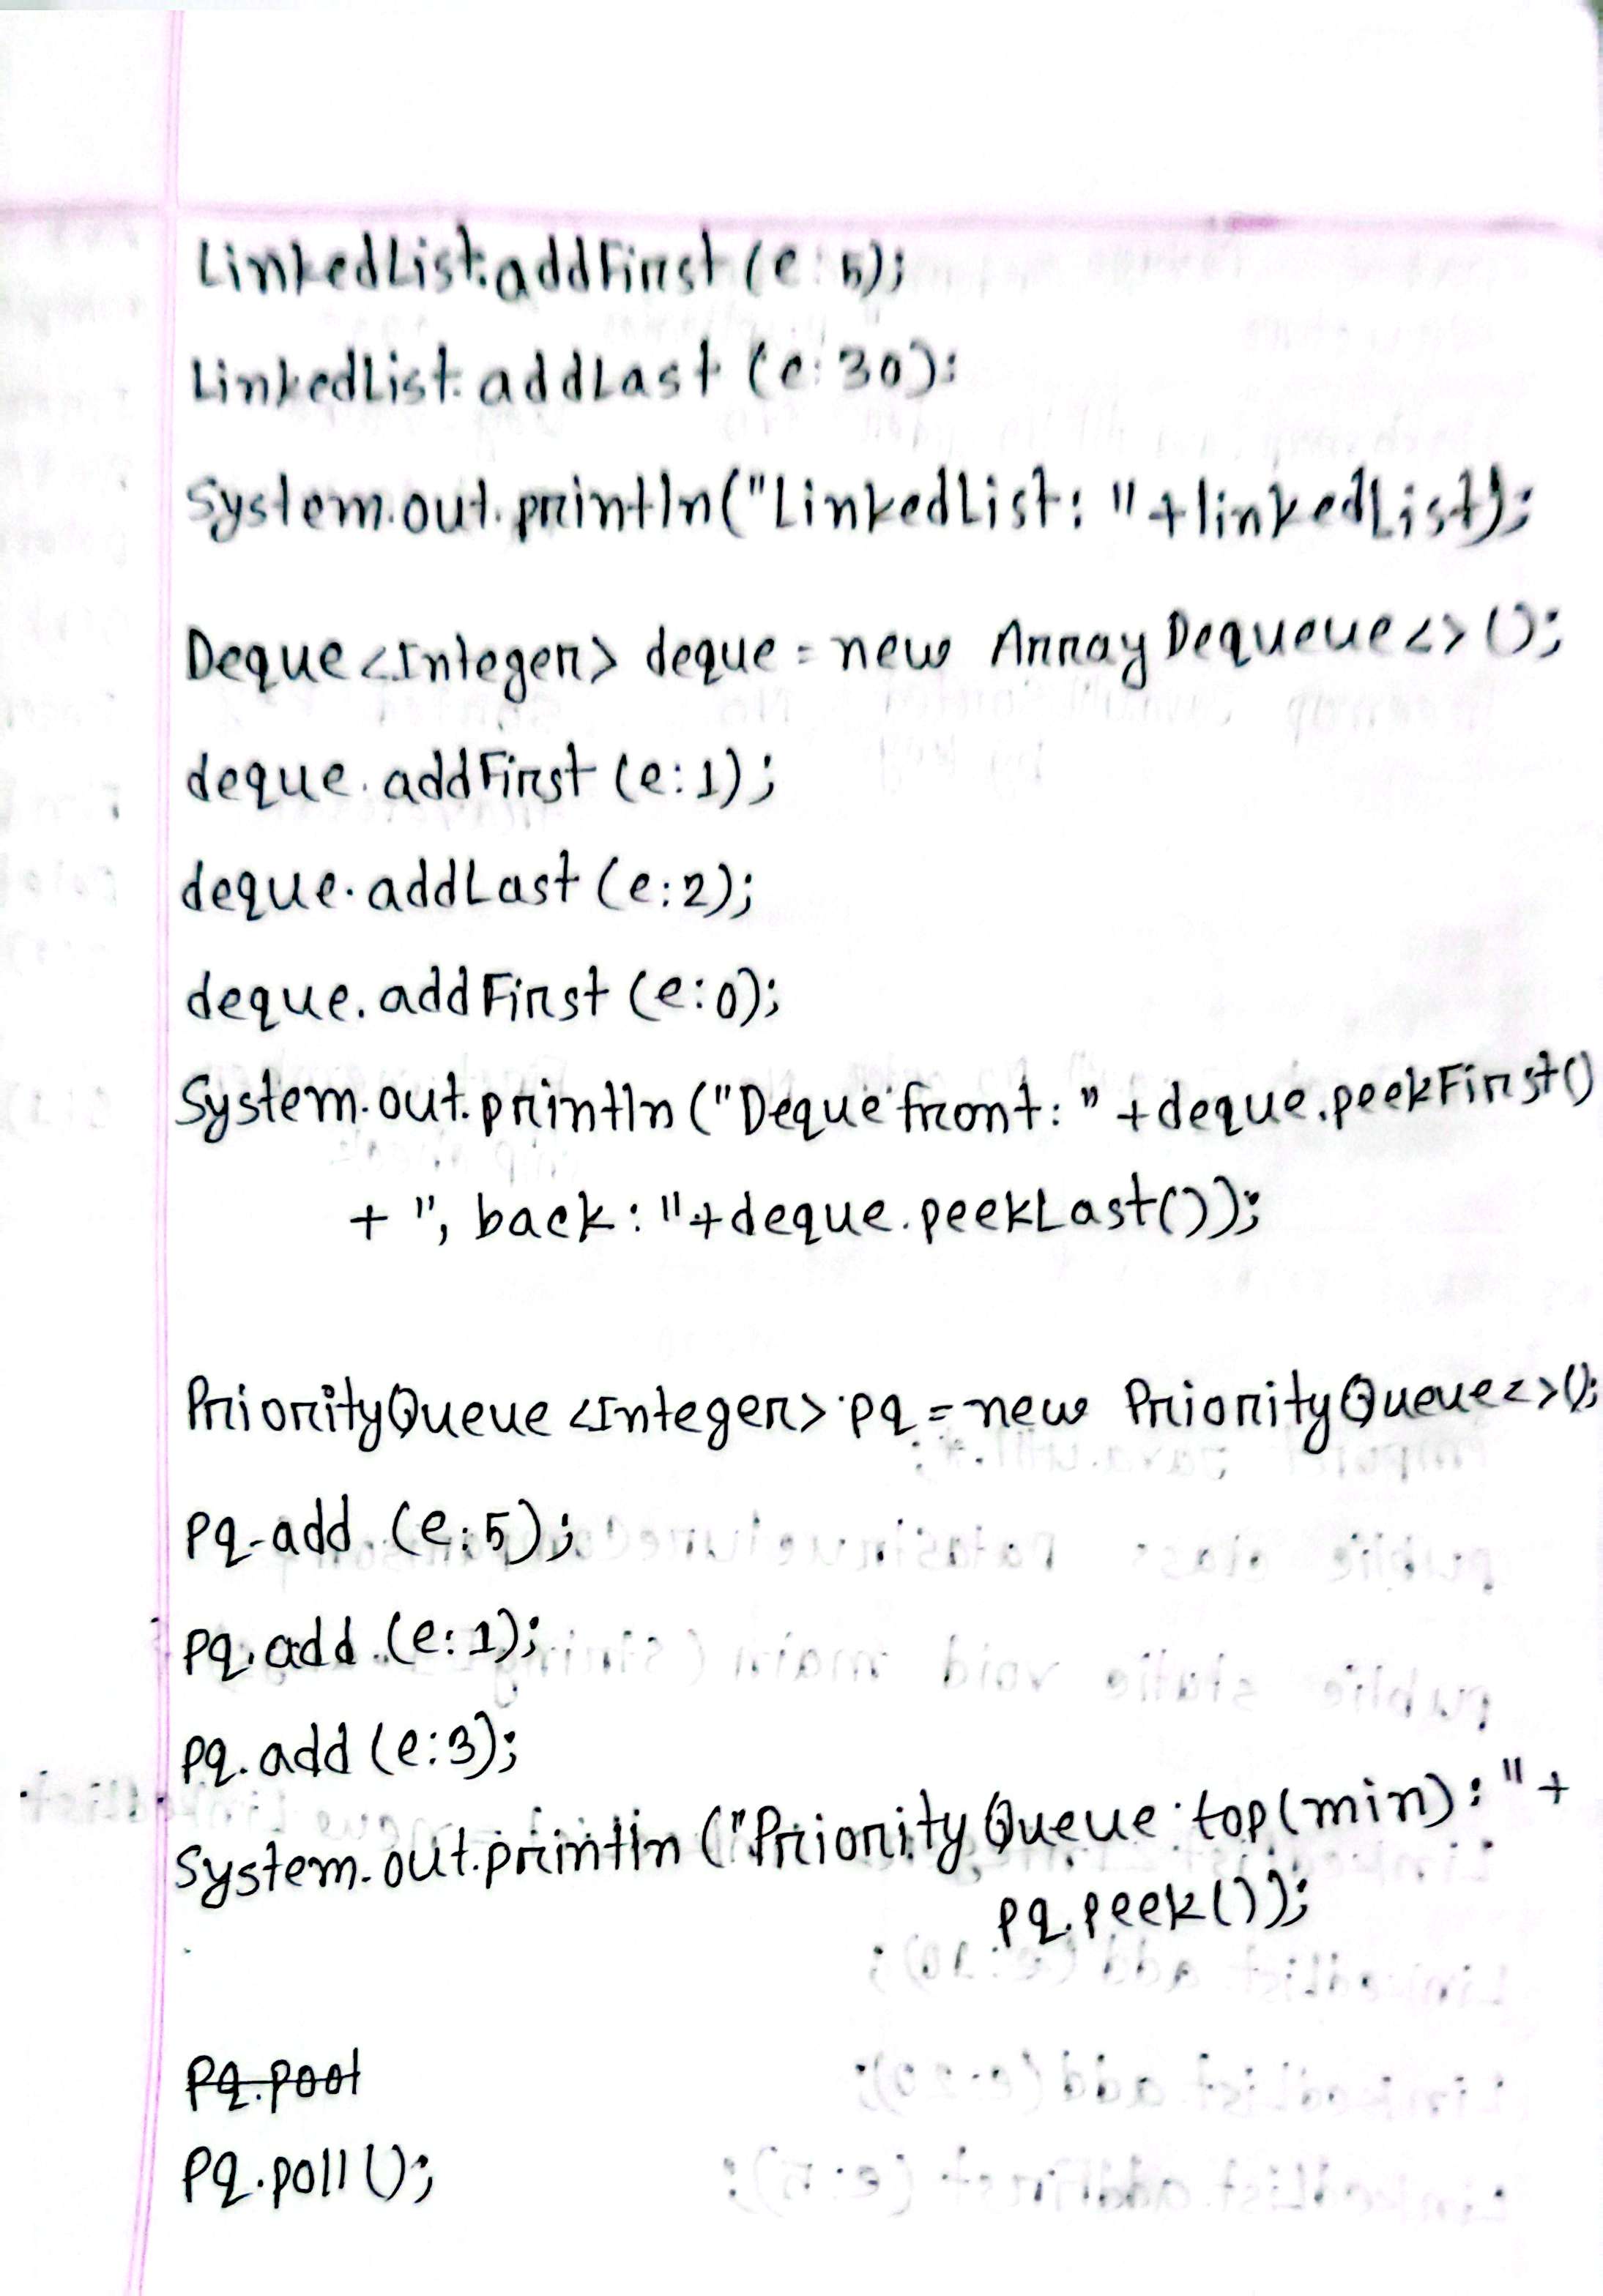 LinkedList.addFirst(e:5);
LinkedList.addLast (e:30):
System.out.println("LinkedList: "+linkedList);
Deque<Integer> deque = new ArrayDequeue<>();
deque.addFirst (e:1);
deque.addLast (e:2);
deque.addFirst (e:0);
System.out.println("Deque front: " +deque.peekFirst()
+ ", back: "+deque.peekLast());
PriorityQueue<Integer> pq = new PriorityQueue<>();
pq.add (e:5);
pq.add (e:1);
pq.add (e:3);
System.out.println ("PriorityQueue top(min): "+
pq.peek());
pq.pool
pq.poll();